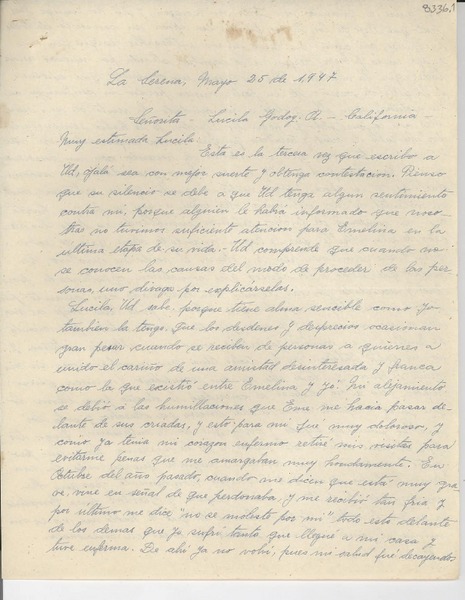 8336.1
La Serena, Mayo 25 de 1947
Señorita - Lucila Godoy A. - California -
Muy estimada Lucila:
Esta es la tercera vez que escribo a
Ud, ójalá sea con mejor suerte y obtenga contestacion. Pienso
que su silencio se debe a que Ud tenga algun sentimiento
contra mi, porque alguien le habia informado que noso-
tras no tuvimos suficiente atencion para Emelina en la
ultima etapa de su vida. Ud comprende que cuando no
se conocen las causas del modo de proceder de las per-
sonas, uno divaga por explicárselas.
Lucila, Ud sabe, porque tiene alma sencible como yo
tambien la tengo. Que los desdenes y desprecios ocasionan
gran pesar cuando se reciben de personas a quienes a
unido el cariño de una amistad desinteresada y franca
como la que escitió entre Emelina y Yó. Mi alejamiento
se debió a las humillaciones que Eme me hacia pasar de-
lante de sus criadas, y esto para mi fué muy doloroso, y
como ya tenia mi corazon enfermo retiré mis visitas para
evitarme penas que me amargaban muy hondamente. En
Octubre del año pasado, cuando me dicen que está muy gra-
ve, vine en señal de que perdonaba, y me recibió tan fria y
por último me dice "no se moleste por mi" todo esto delante
de los demas que yo sufri tanto que llegué a mi casa y
tuve enferma. De ahi ya no volvi, pues mi salud fué decayendo